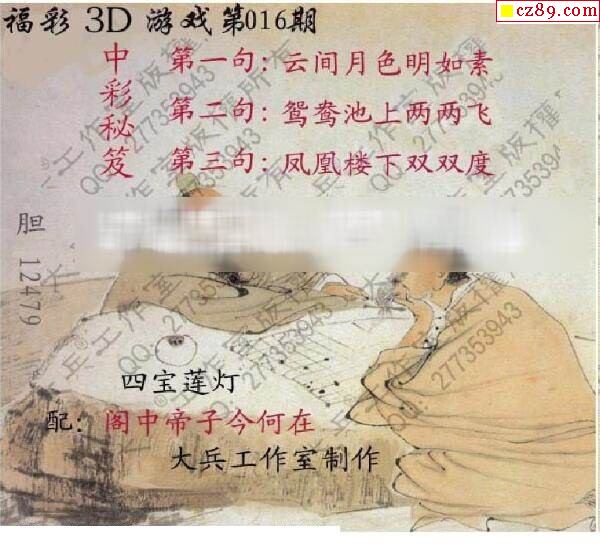 福彩 3D 游戏第016期
cz89.com
中彩秘笈
第一句：云间月色明如素
第二句：鸳鸯池上两两飞
第三句：凤凰楼下双双度
胆 12479
四宝莲灯
配：阁中帝子今何在
大兵工作室制作
大兵工作室版權所有
QQ:277353943